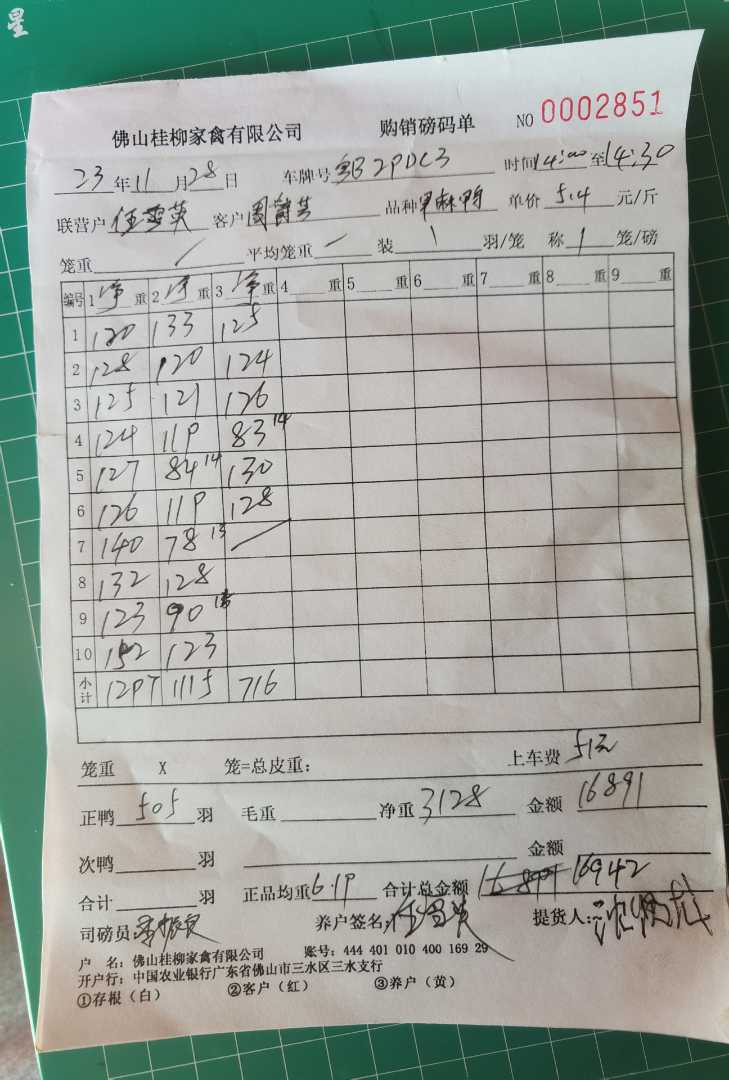 星
佛山桂柳家禽有限公司 购销磅码单 NO 0002851
23 年 11 月 28 日 车牌号 粤B2PDC3 时间 14:00 至 14:30
联营户 任雪英 客户 品种 单价 5.4 元/斤
笼重 / 平均笼重 — 装 1 羽/笼 称 1 笼/磅
编号 1 净 重 2 净 重 3 净 重 4 重 5 重 6 重 7 重 8 重 9 重
1 120 133 125
2 128 120 124
3 125 121 126
4 124 119 83 14
5 127 84 14 130
6 126 119 128
7 140 78 13 /
8 132 128
9 123 90
10 152 123
小计 1297 1115 716
笼重 X 笼=总皮重: 上车费 51元
正鸭 505 羽 毛重 净重 3128 金额 16891
次鸭 羽 金额
合计 羽 正品均重 6.19 合计总金额 16942
司磅员: 养户签名: 提货人:
户 名: 佛山桂柳家禽有限公司 账号: 444 401 010 400 169 29
开户行: 中国农业银行广东省佛山市三水区三水支行
①存根(白) ②客户(红) ③养户(黄)